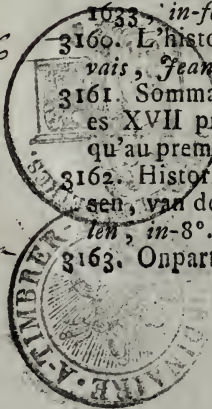 1633, in-f
3160. L'histo
vais, Jean
3161. Somma
es XVII pr
qu'au prem
3162. Histor
sen, van de
len, in-8°.
3163. Onpart
A·TIMBRER